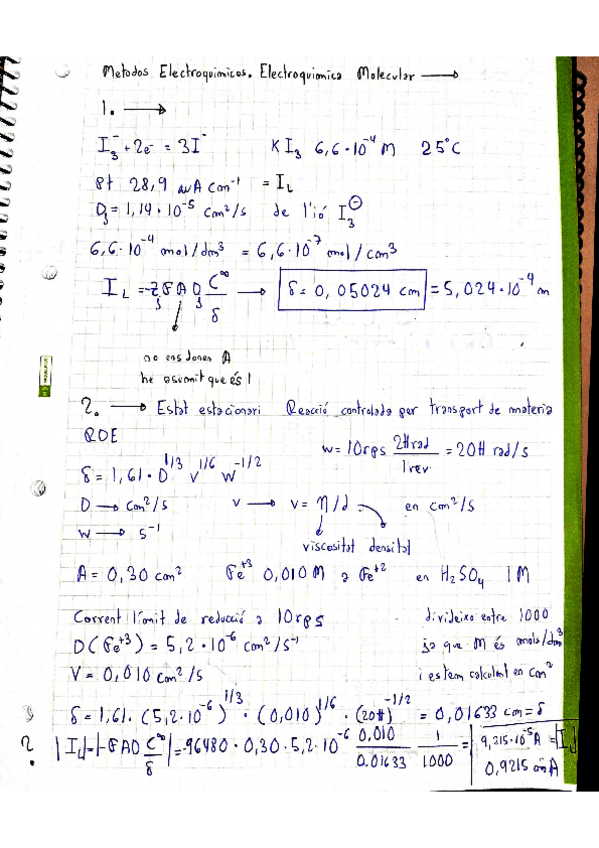 Metodos Electroquimicos. Electroquimica Molecular →
1. →
I₃⁻ + 2e⁻ = 3I⁻ KI₃ 6,6·10⁻⁴ M 25°C
Pt 28,9 µA cm⁻¹ = I_L
D₃ = 1,14·10⁻⁵ cm²/s de l'ió I₃⊖
6,6·10⁻⁴ mol/dm³ = 6,6·10⁻⁷ mol/cm³
I_L = -zFAD₃ C^∞/δ → δ = 0,05024 cm = 5,024·10⁻⁴ m
no ens donen A
he asumit que és 1
2. → Estat estacionari Reacció controlada per transport de materia
RDE
w = 10rps 2π rad / 1 rev = 20π rad/s
δ = 1,61·D^1/3 ν^1/6 w^-1/2
D → cm²/s ν → ν = η/d → en cm²/s
w → s⁻¹
viscositat densitat
A = 0,30 cm² Fe⁺³ 0,010 M a Fe⁺² en H₂SO₄ 1M
Corrent límit de reducció a 10rps divideixo entre 1000
D(Fe⁺³) = 5,2·10⁻⁶ cm²/s⁻¹ ja que M és mols/dm³
V = 0,010 cm²/s i estem calculant en cm²
δ = 1,61·(5,2·10⁻⁶)^1/3·(0,010)^1/6·(20π)^-1/2 = 0,01633 cm = δ
2. |I_L| = |-FAD C^∞/δ| = -96480·0,30·5,2·10⁻⁶ 0,010/0.01633 1/1000 = 9,215·10⁻⁵ A = |I_L|
0,9215 mA